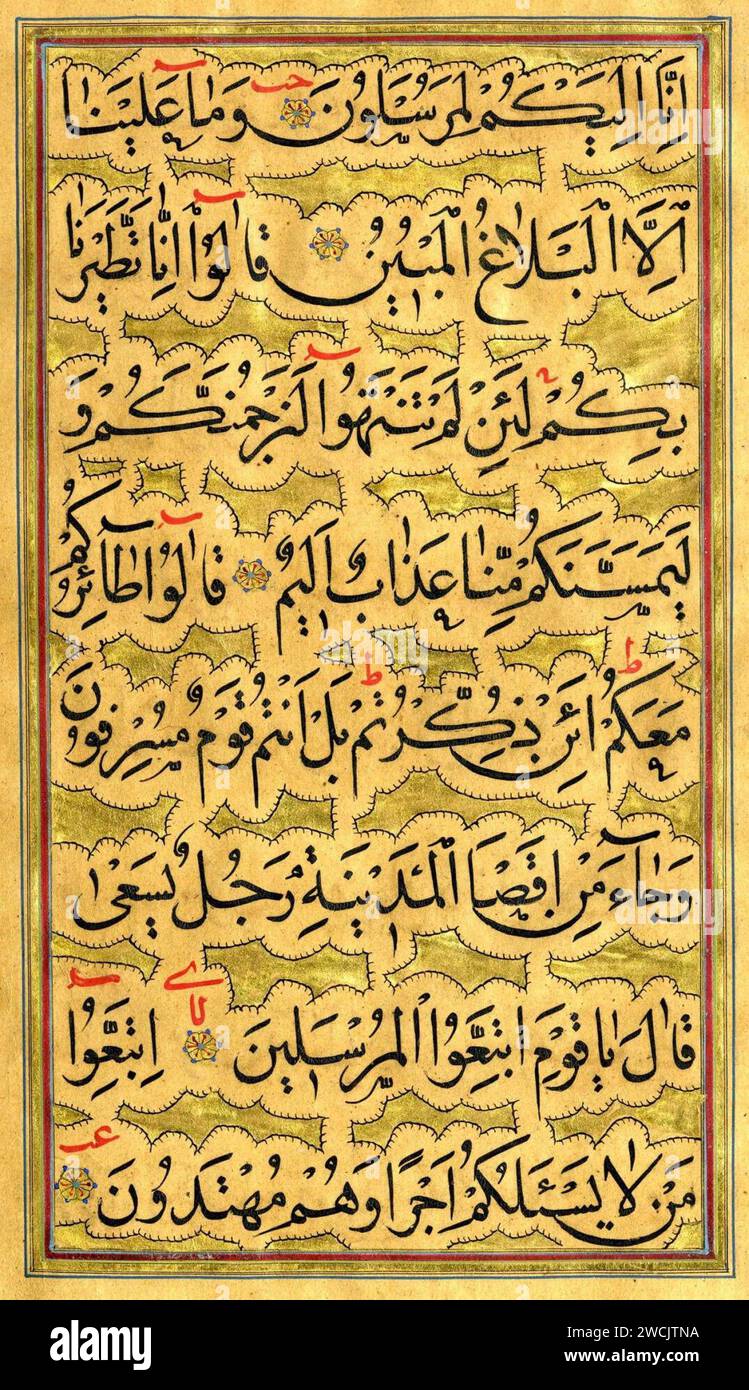 اِنَّٓا اِلَيْكُمْ لَمُرْسَلُونَ وَمَا عَلَيْنَٓا
اِلَّا الْبَلَاغُ الْمُبِينُ قَالُٓوا اِنَّا تَطَيَّرْنَا
بِكُمْ لَئِنْ لَمْ تَنْتَهُوا لَنَرْجُمَنَّكُمْ وَ
لَيَمَسَّنَّكُمْ مِنَّا عَذَابٌ اَلِيمٌ قَالُوا طَٓائِرُكُمْ
مَعَكُمْ اَئِنْ ذُكِّرْتُمْ بَلْ اَنْتُمْ قَوْمٌ مُسْرِفُونَ
وَجَٓاءَ مِنْ اَقْصَا الْمَدِينَةِ رَجُلٌ يَسْعٰى
قَالَ يَا قَوْمِ اتَّبِعُوا الْمُرْسَلِينَ اِتَّبِعُوا
مَنْ لَا يَسْـَٔلُكُمْ اَجْرًا وَهُمْ مُهْتَدُونَ
alamy
Image ID: 2WCJTNA
www.alamy.com